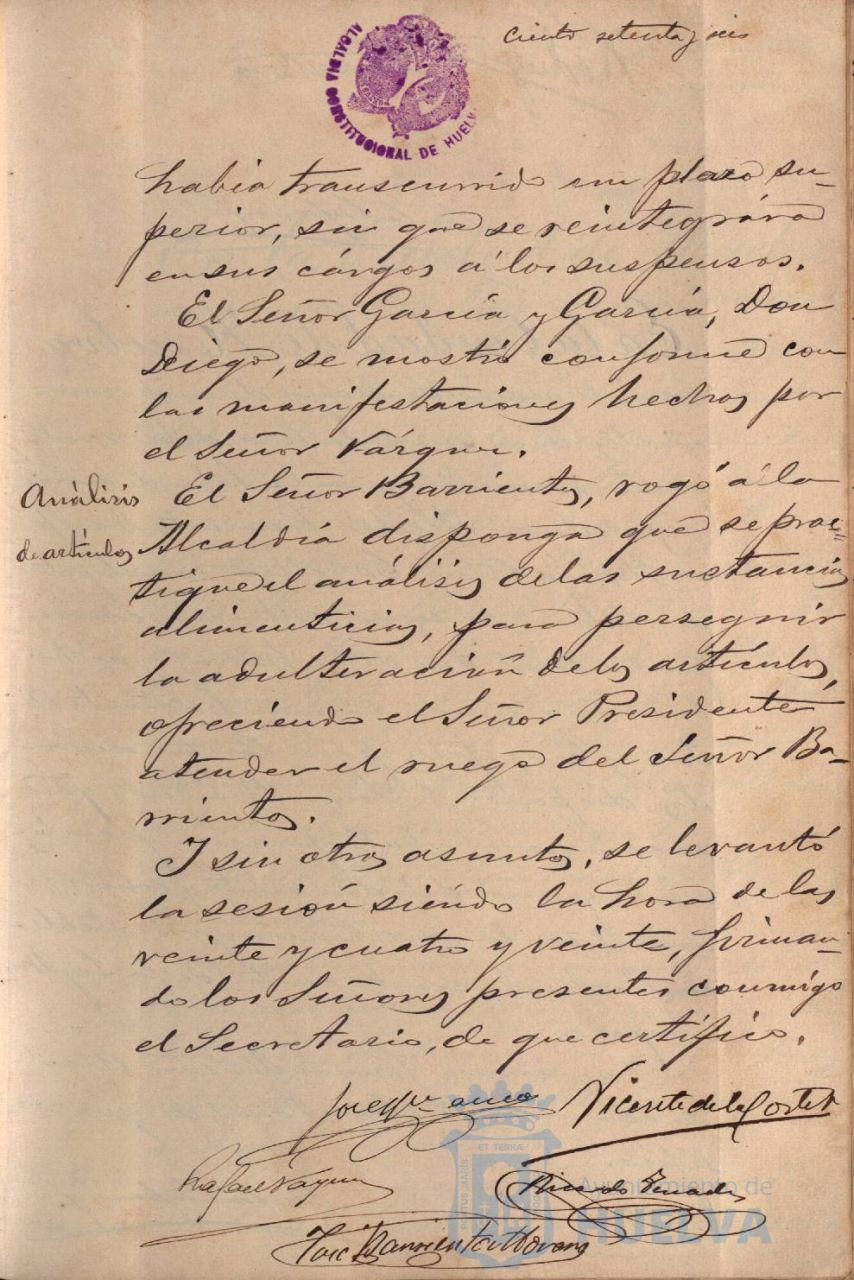 ciento setenta y seis
ALCALDIA CONSTITUCIONAL DE HUELVA
habia transcurrido un plazo su-
perior, sin que se reintegrára
en sus cárgos á los suspensos.
El Señor García y García, Don
Diego, se mostró conforme con
las manifestaciones hechas por
el Señor Vázquez.
Análisis
de artículos
El Señor Barrientos, rogó á la
Alcaldía disponga que se prac
tique el análisis de las sustancias
alimenticias, para perseguir
la adulteración de los artículos,
ofreciendo el Señor Presidente
atender el ruego del Señor Ba-
rrientos.
Y sin otros asuntos, se levantó
la sesión siéndo la hora de las
veinte y cuatro y veinte, firman-
do los Señores presentes conmigo
el Secretario, de que certífico.
Vicente de la Corte
Rafael Vázquez
Ricardo
José Barrientos Moreno
ET TERRAE
Ayuntamiento de
HUELVA